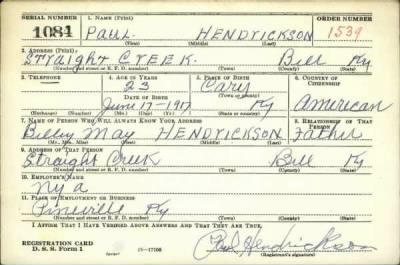 SERIAL NUMBER 1. NAME (Print) ORDER NUMBER
1084 Paul HENDRICKSON 1539
(First) (Middle) (Last)
2. ADDRESS (Print)
Straight Creek. Bell Ky
(Number and street or R. F. D. number) (Town) (County) (State)
3. TELEPHONE 4. AGE IN YEARS 5. PLACE OF BIRTH 6. COUNTRY OF CITIZENSHIP
23 Cary
DATE OF BIRTH (Town or county)
June-17-1917 Ky American
(Exchange) (Number) (Mo.) (Day) (Yr.) (State or country)
7. NAME OF PERSON WHO WILL ALWAYS KNOW YOUR ADDRESS 8. RELATIONSHIP OF THAT PERSON
Billy May HENDRICKSON Father
(Mr., Mrs., Miss) (First) (Middle) (Last)
9. ADDRESS OF THAT PERSON
Straight Creek Bell Ky
(Number and street or R. F. D. number) (Town) (County) (State)
10. EMPLOYER'S NAME
Ny a
11. PLACE OF EMPLOYMENT OR BUSINESS
Pineville Ky
(Number and street or R. F. D. number) (Town) (County) (State)
I AFFIRM THAT I HAVE VERIFIED ABOVE ANSWERS AND THAT THEY ARE TRUE.
REGISTRATION CARD
D. S. S. Form 1 16—17105 Paul Hendrickson
(Registrant's signature)